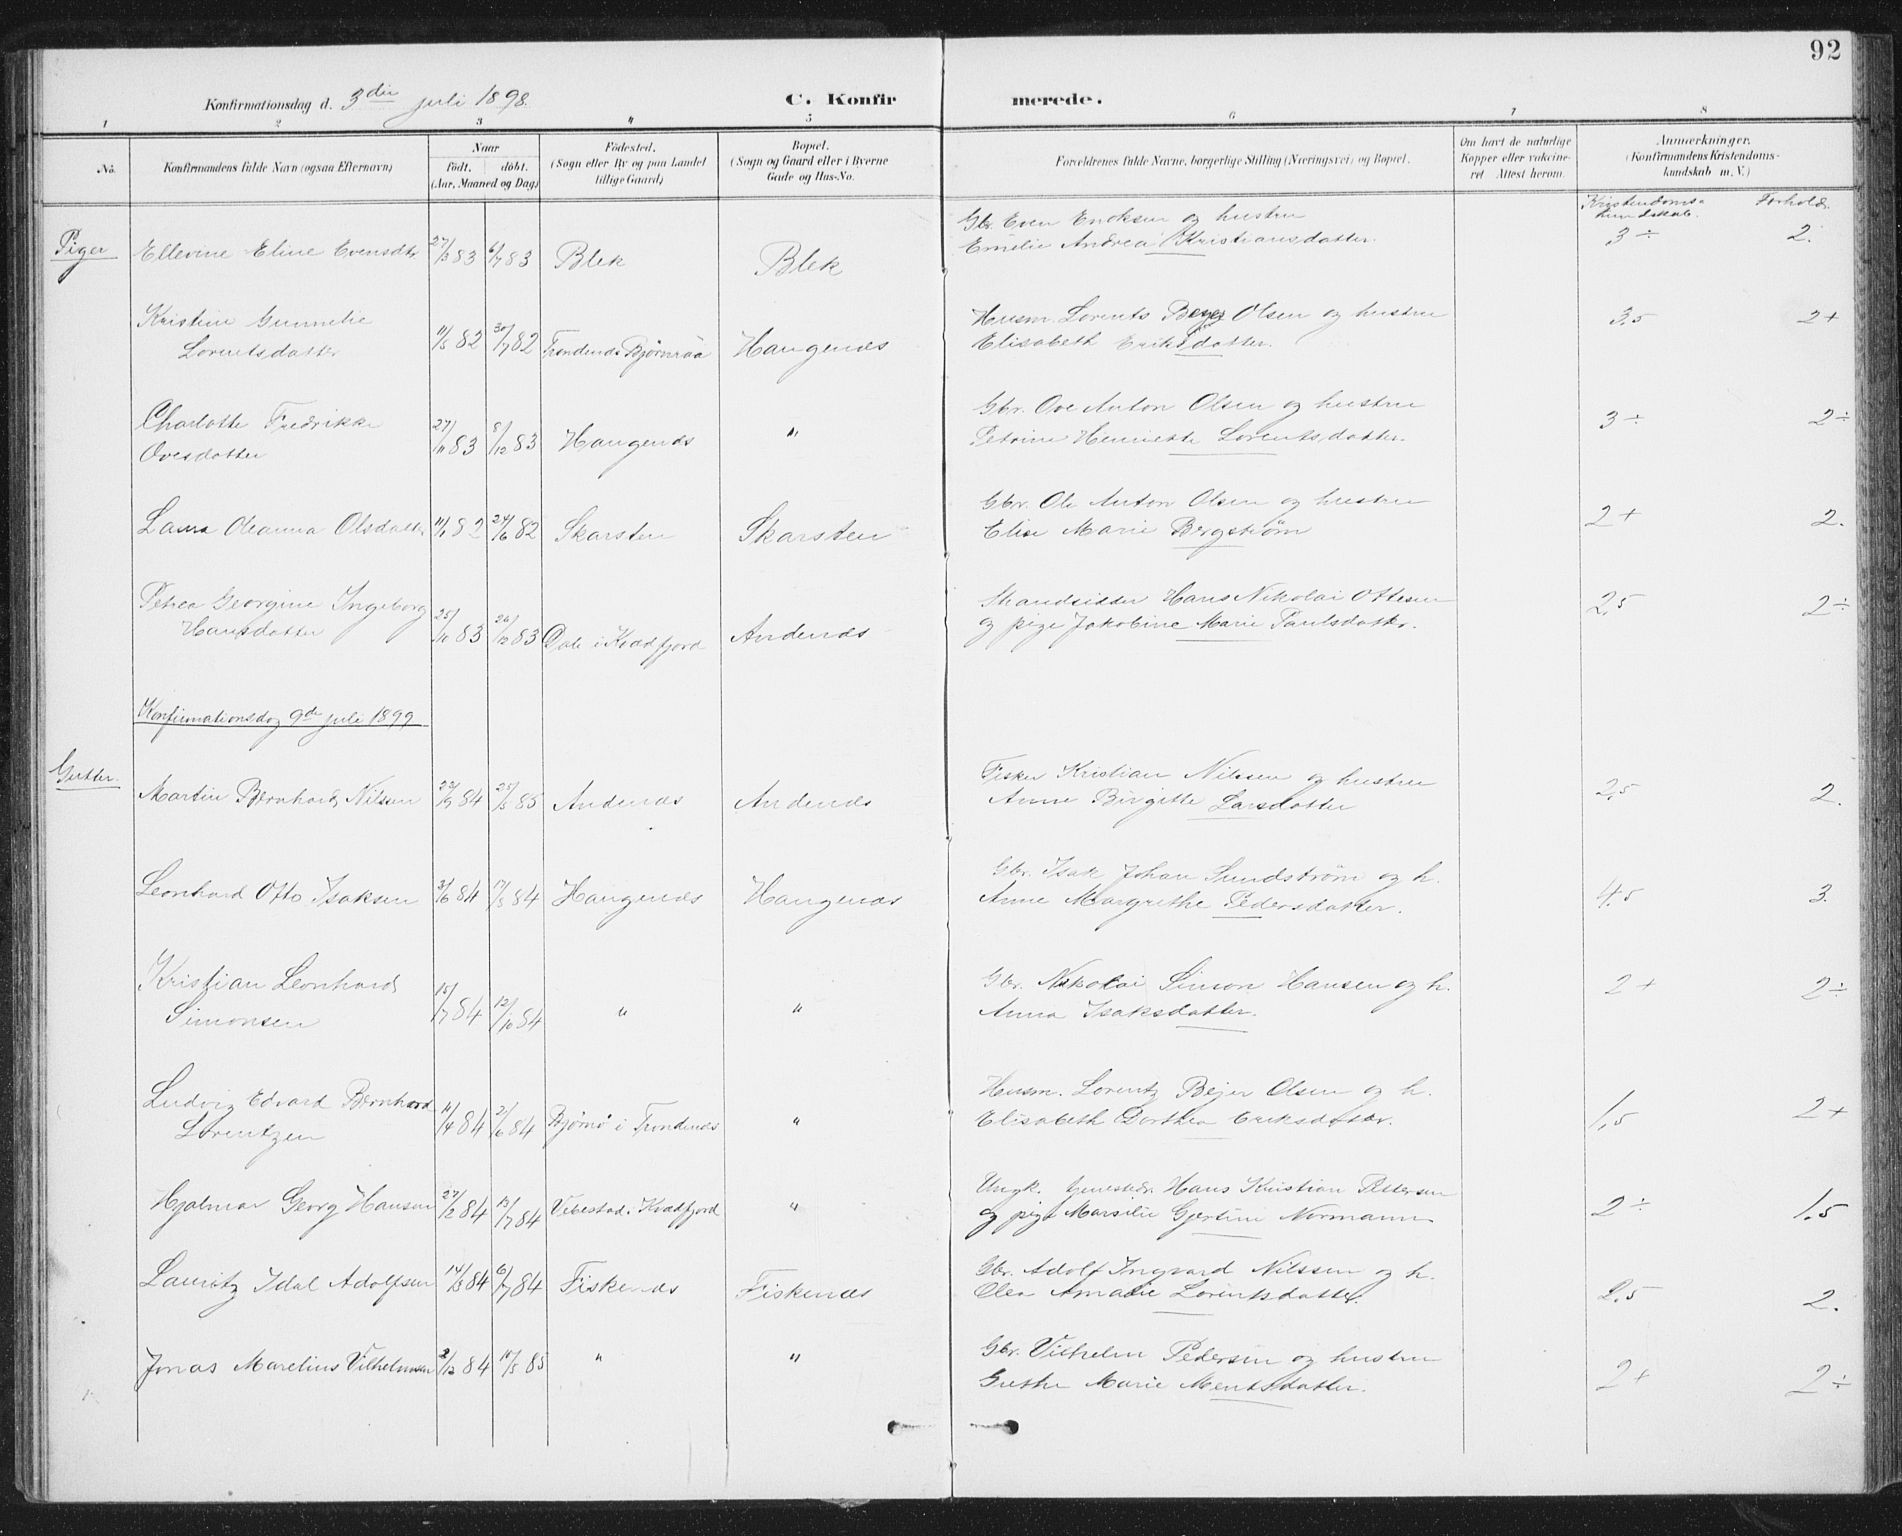 92
Konfirmationsdag d. 3die juli 1898.
C. Konfirmerede.
1 2 3 4 5 6 7 8
No.
Konfirmandens fulde Navn (ogsaa Efternavn)
Naar
födt. döbt.
(Aar, Maaned og Dag)
Födested.
(Sogn eller By og paa Landet
tillige Gaard)
Bopæl.
(Sogn og Gaard eller i Byerne
Gade og Hus-No.
Forældrenes fulde Navne, borgerlige Stilling (Næringsvei) og Bopæl.
Om havt de naturlige
Kopper eller vakcine-
ret Attest herom.
Anmærkninger.
(Konfirmandens Kristendoms-
kundskab m. V.)
Kristendoms- Forhold.
kundskab.
Piger
Ellevine Eline Evensdtr 27/3 83 6/7 83 Blek Blek
Gbr. Even Enoksen og hustru
Emelie Andrea Kristiansdatter. 3÷ 2.
Kristine Gunnelie
Lorentsdatter 11/5 82 30/7 82 Trondenæs Bjørnraa Haugenæs
Husm. Lorents Beyer Olsen og hustru
Elisabeth Eriksdatter. 3,5 2+
Charlotte Fredrikke
Ovesdatter 27/11 83 8/12 83 Haugenæs "
Gbr. Ove Anton Olsen og hustru
Petrine Henriette Lorentsdatter. 3÷ 2÷
Laura Oleanna Olsdattr. 11/1 82 24/6 82 Skarsten Skarsten
Gbr. Ole Anton Olsen og hustru
Elise Marie Bergstrøm 2+ 2.
Petrea Georgine Ingeborg
Hansdatter 25/10 83 26/12 83 Dale i Kvædfjord Andenæs
Strandsidder Hans Nikolai Ottesen
og pige Jakobine Marie Paulsdatter. 2,5 2÷
Konfirmationsdag 9de juli 1899
Gutter.
Martin Bernhard Nilsen 22/9 84 25/5 85 Andenæs Andenæs
Fisker Kristian Nilssen og hustru
Anne Birgitte Larsdatter 2,5 2.
Leonhard Otto Isaksen 3/6 84 17/5 84 Haugenæs Haugenæs
Gbr. Isak Johan Sundstrøm og h.
Anne Margrethe Pedersdatter. 4.5 3.
Kristian Leonhard
Simonsen 15/7 84 12/10 84 " "
Gbr. Nikolai Simon Hansen og h.
Anna Isaksdatter. 2+ 2÷
Ludvig Edvard Bernhard
Lorentzen 11/4 84 2/6 84 Bjørnø i Trondenæs "
Husm. Lorentz Bejer Olsen og h.
Elisabeth Dorthea Eriksdatter. 1,5 2+
Hjalmar Georg Hansen 27/2 84 13/7 84 Vebestad i Kvædfjord "
Ungk. tjenestedr. Hans Kristian Pettersen
og pige Marselie Gjertine Normann 2÷ 1.5
Lauritz Idal Adolfsen 14/3 84 6/7 84 Fiskenæs Fiskenæs
Gbr. Adolf Ingvard Nilssen og h.
Olea Amalie Lorentsdatter. 2,5 2.
Jonas Marelius Vilhelmsen 2/12 84 11/5 85 " "
Gbr. Vilhelm Pedersen og hustru
Grethe Marie Mentsdatter. 2+ 2÷